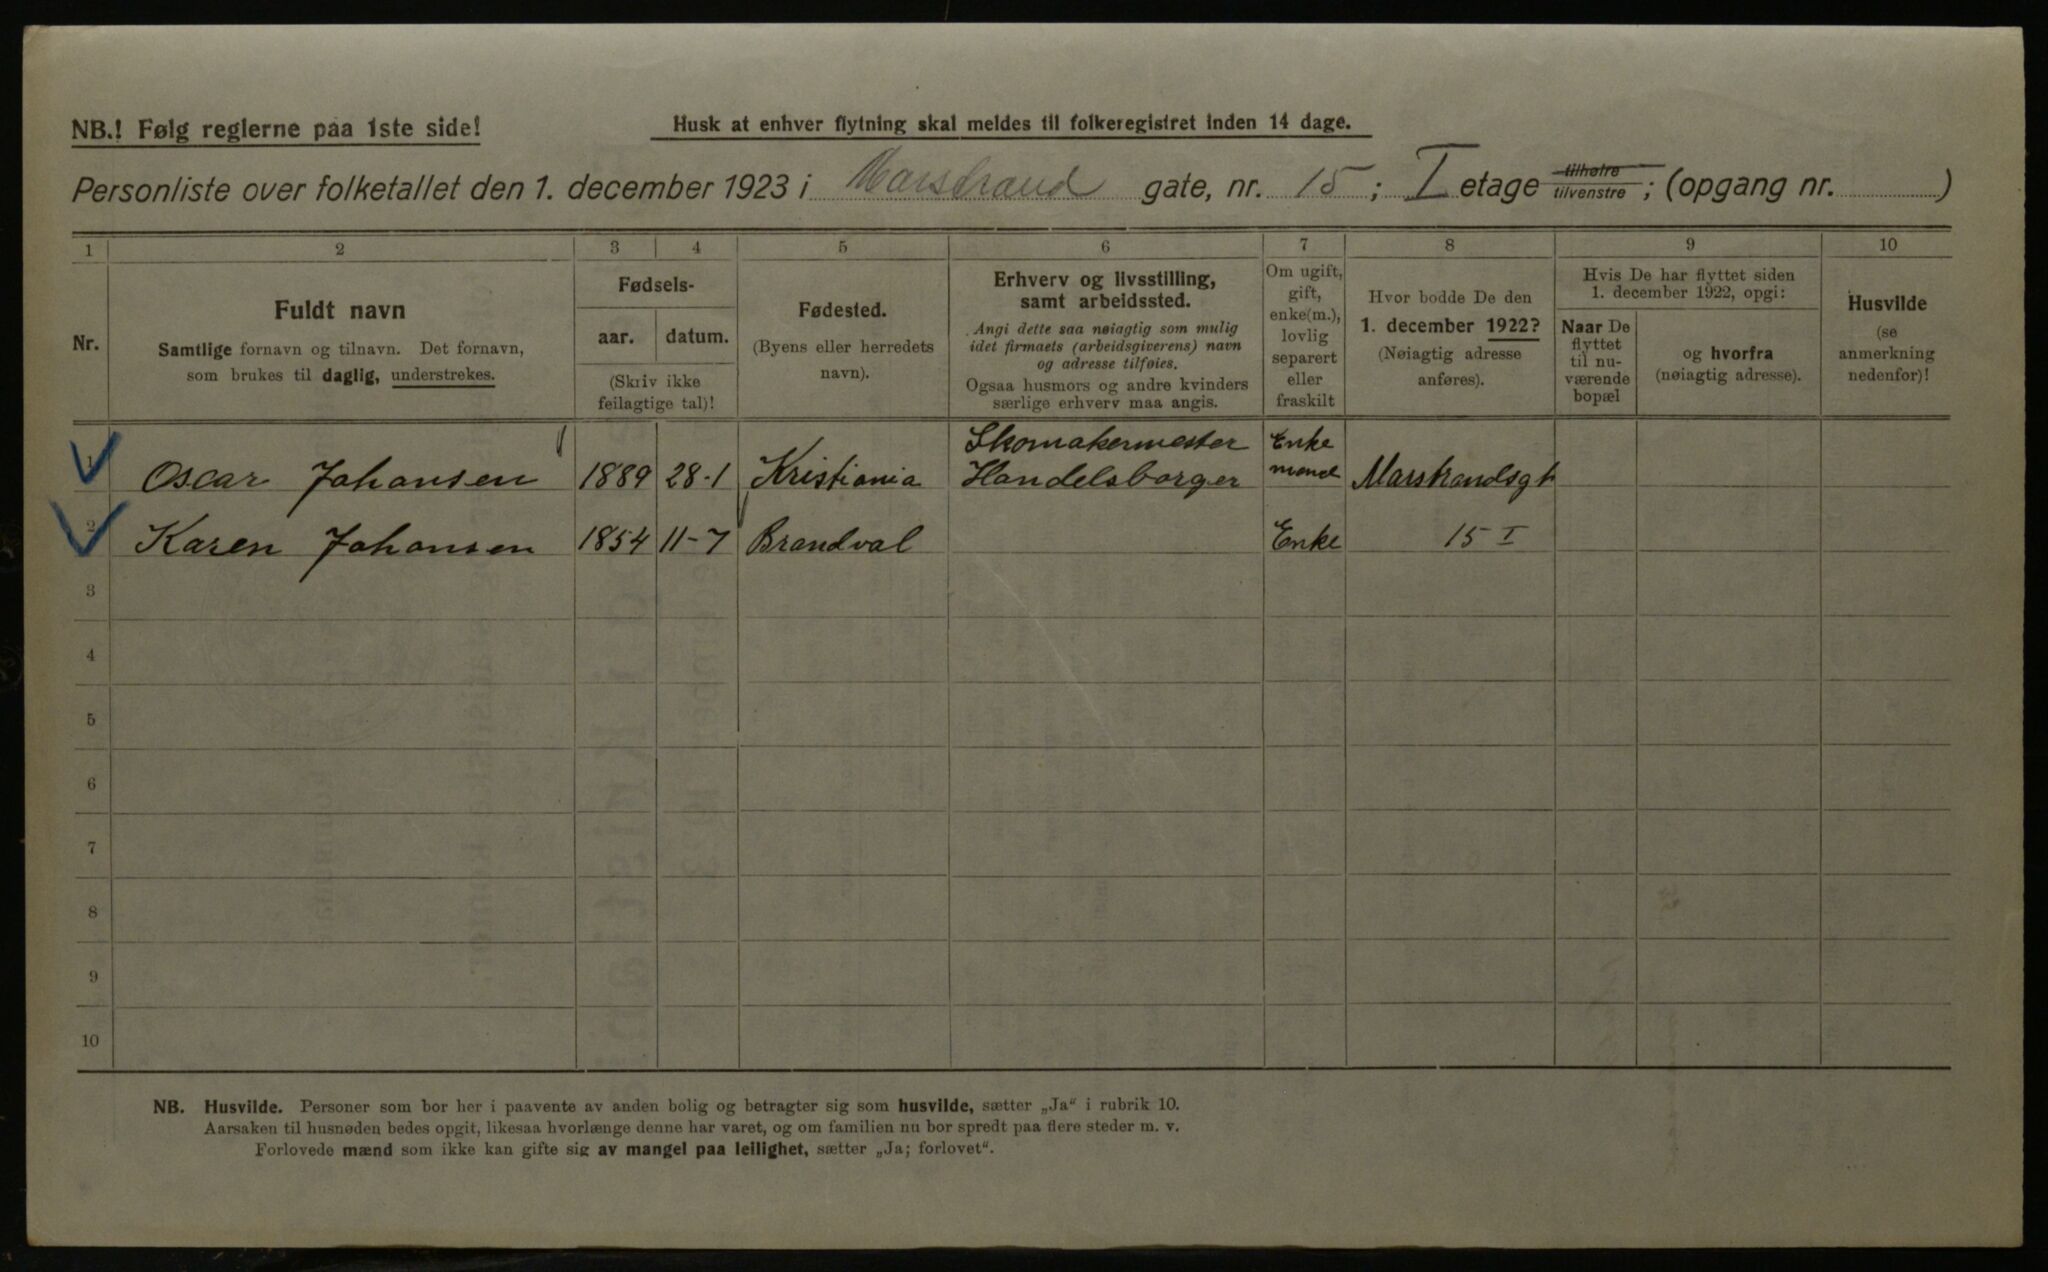 NB.! Følg reglerne paa 1ste side!
Husk at enhver flytning skal meldes til folkeregistret inden 14 dage.
Personliste over folketallet den 1. december 1923 i Marstrand gate, nr. 15; I etage tilhøire tilvenstre; (opgang nr. )
1 2 3 4 5 6 7 8 9 10
Nr.
Fuldt navn
Samtlige fornavn og tilnavn. Det fornavn,
som brukes til daglig, understrekes.
Fødsels-
aar. datum.
(Skriv ikke
feilagtige tal)!
Fødested.
(Byens eller herredets
navn).
Erhverv og livsstilling,
samt arbeidssted.
Angi dette saa nøiagtig som mulig
idet firmaets (arbeidsgiverens) navn
og adresse tilføies.
Ogsaa husmors og andre kvinders
særlige erhverv maa angis.
Om ugift,
gift,
enke(m.),
lovlig
separert
eller
fraskilt
Hvor bodde De den
1. december 1922?
(Nøiagtig adresse
anføres).
Hvis De har flyttet siden
1. december 1922, opgi:
Naar De
flyttet
til nu-
værende
bopæl
og hvorfra
(nøiagtig adresse).
Husvilde
(se
anmerkning
nedenfor)!
1 Oscar Johansen 1889 28-1 Kristiania Skomakermester Handelsborger Enke mand Marstrandsgt
2 Karen Johansen 1854 11-7 Brandval Enke 15 I
3
4
5
6
7
8
9
10
NB. Husvilde. Personer som bor her i paavente av anden bolig og betragter sig som husvilde, sætter „Ja“ i rubrik 10.
Aarsaken til husnøden bedes opgit, likesaa hvorlænge denne har varet, og om familien nu bor spredt paa flere steder m. v.
Forlovede mænd som ikke kan gifte sig av mangel paa leilighet, sætter „Ja; forlovet“.